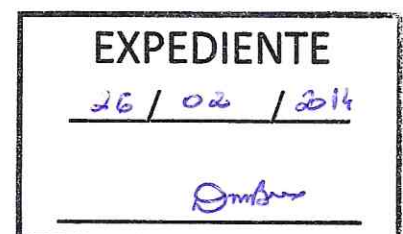 EXPEDIENTE
26 / 02 / 2014